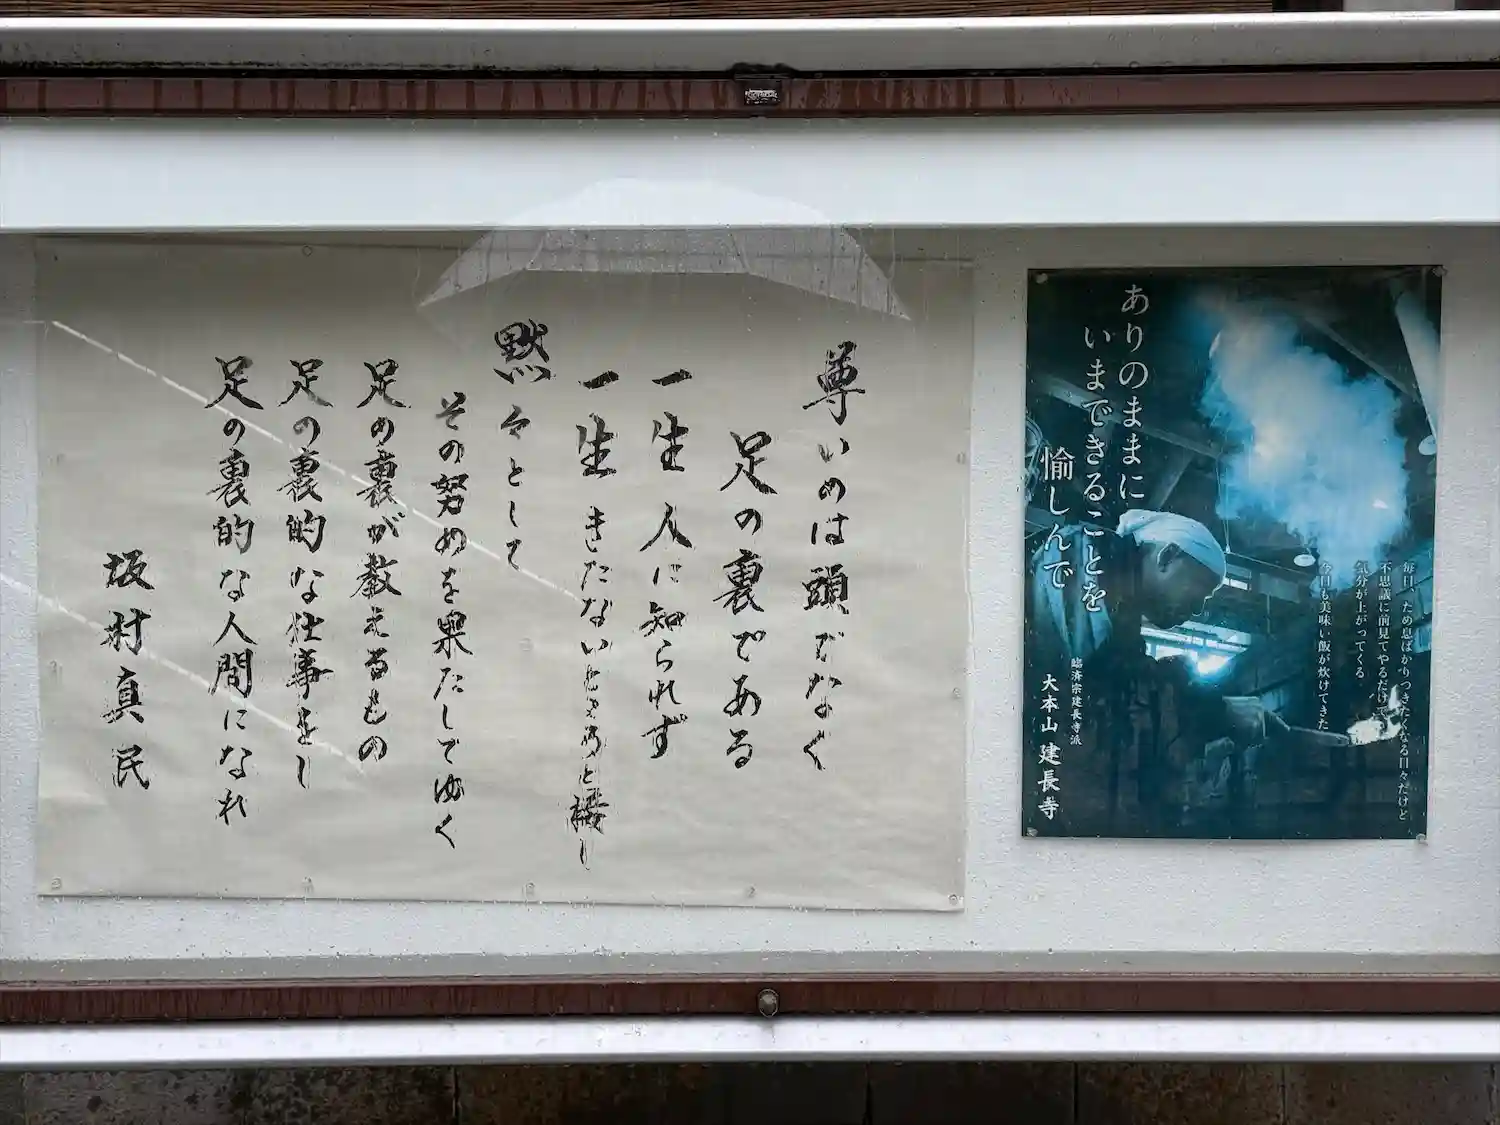 尊いのは頭でなく
足の裏である
一生人に知られず
一生きたないところと接し
黙々として
その努めを果たしてゆく
足の裏が教えるもの
足の裏的な仕事をし
足の裏的な人間になれ
坂村真民
ありのままに
いまできることを
愉しんで
毎日、ため息ばかりつきたくなる日々だけど
不思議に前見てやるだけで
気分が上がってくる
今日も美味い飯が炊けてきた
臨済宗建長寺派
大本山 建長寺